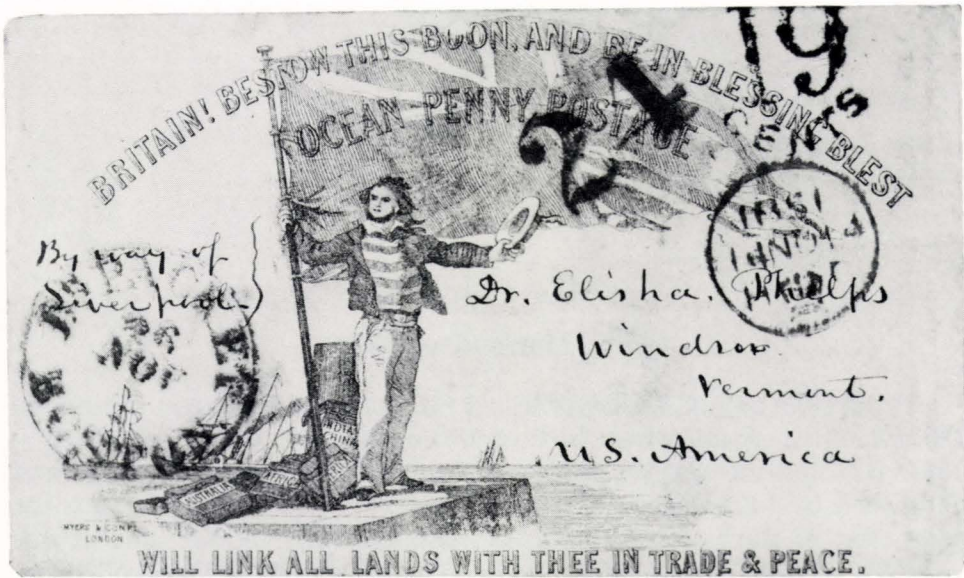 BRITAIN! BESTOW THIS BOON, AND BE IN BLESSING BLEST
OCEAN PENNY POSTAGE
19
CENTS
21
1861
By way of
Liverpool
Dr. Elisha. Phelps
Windsor
Vermont.
U.S. America
INDIA
CHINA
AUSTRALIA
AFRICA
MYERS & COMPY
LONDON
WILL LINK ALL LANDS WITH THEE IN TRADE & PEACE.